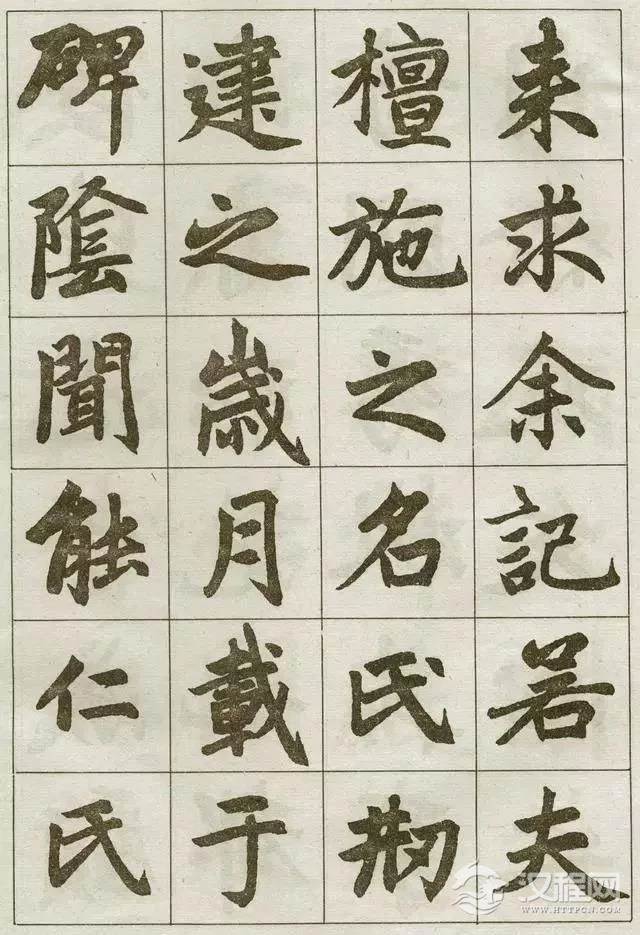 来求余記若夫
檀施之名氏刱
建之歲月載于
碑陰聞能仁氏
汉程网
WWW.HTTPCN.COM